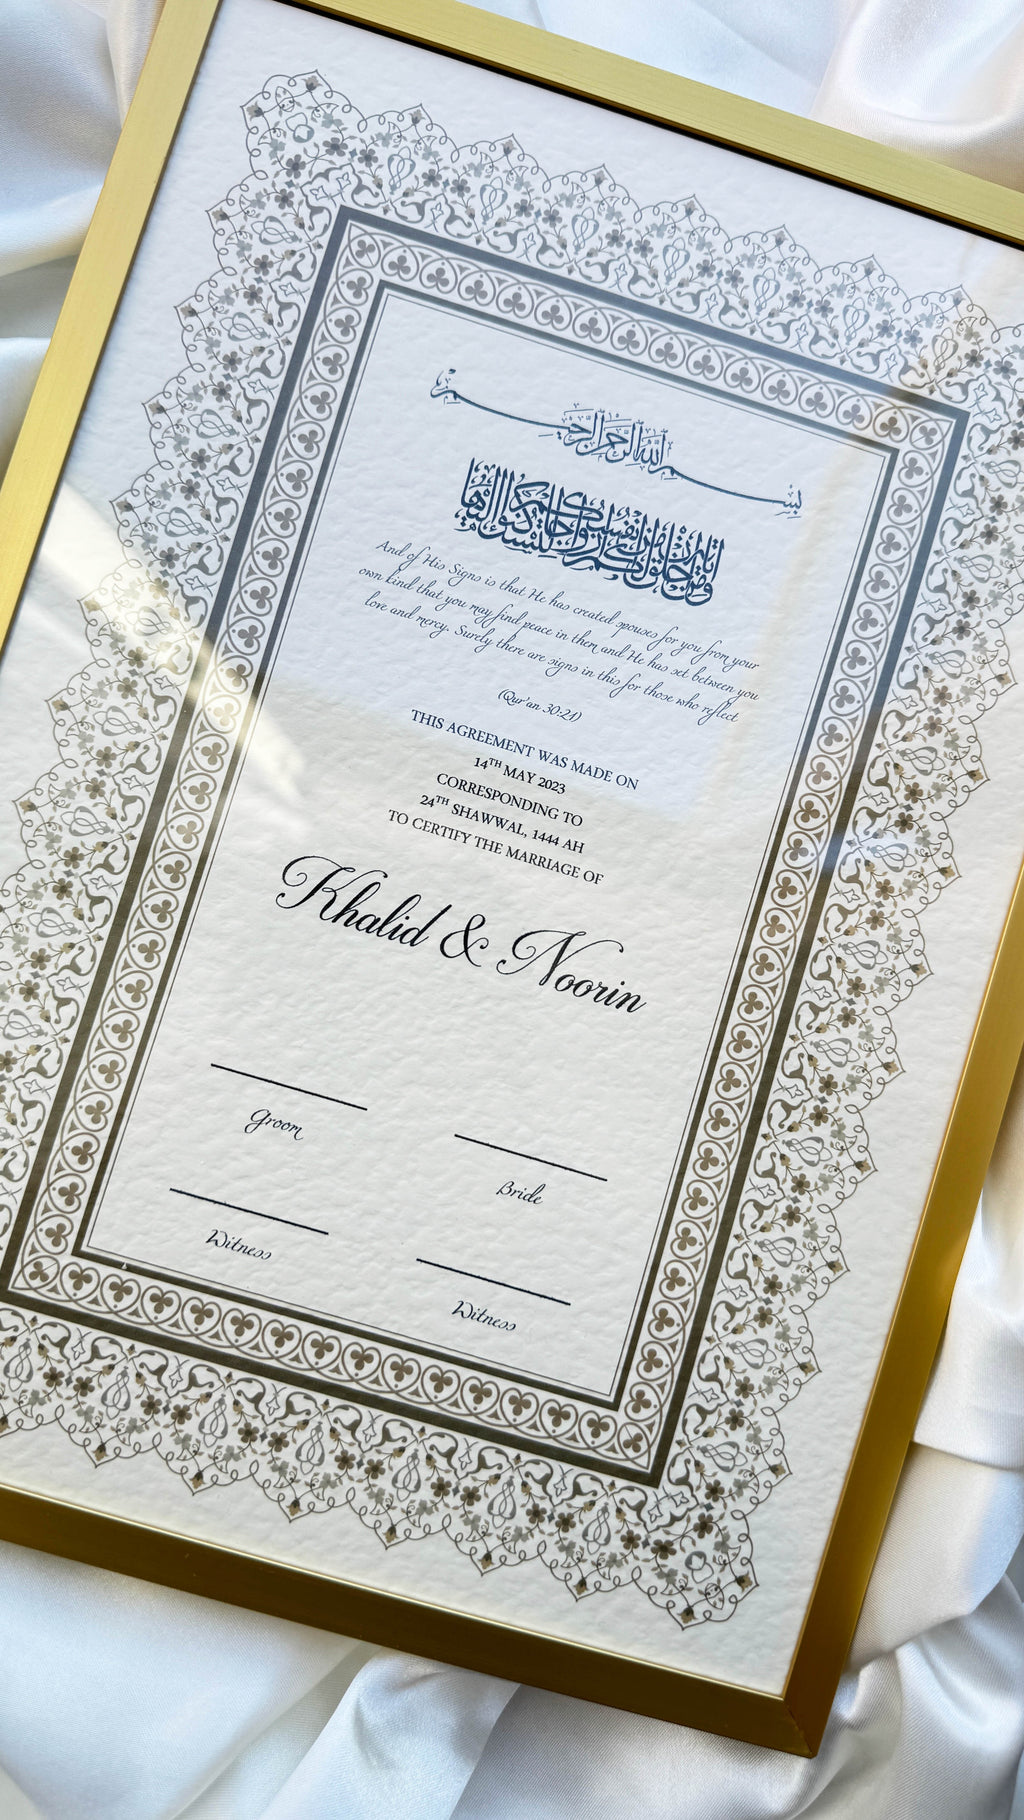 بِسْمِ اللهِ الرَّحْمٰنِ الرَّحِيْمِ
ومن آياته أن خلق لكم من أنفسكم أزواجا لتسكنوا إليها
And of His Signs is that He has created spouses for you from your
own kind that you may find peace in them and He has set between you
love and mercy. Surely there are signs in this for those who reflect
(Qur'an 30:21)
THIS AGREEMENT WAS MADE ON
14TH MAY 2023
CORRESPONDING TO
24TH SHAWWAL, 1444 AH
TO CERTIFY THE MARRIAGE OF
Khalid & Noorin
Groom
Bride
Witness
Witness